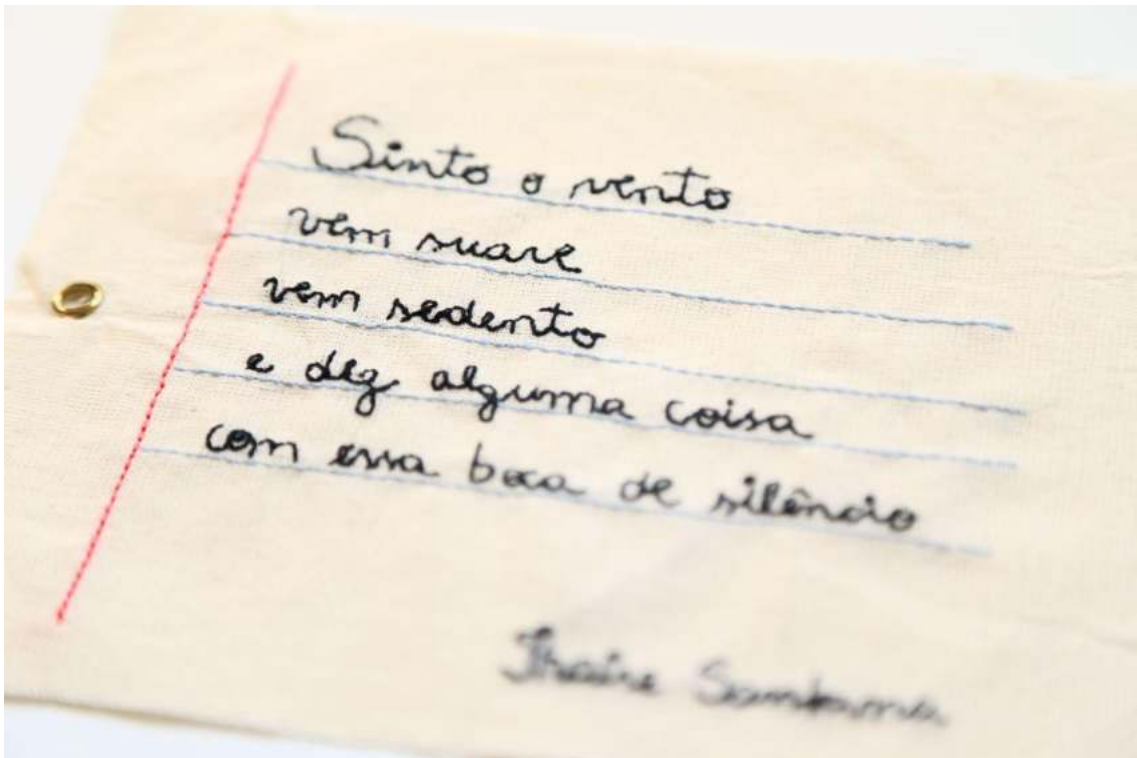 Sinto o vento
vem suave
vem sedento
e diz alguma coisa
com essa boca de silêncio
Thaíse Santana